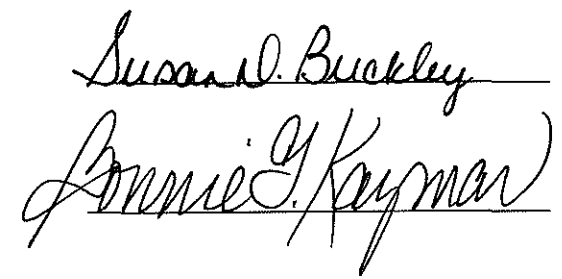 Susan D. Buckley
Bonnie G. Kayman